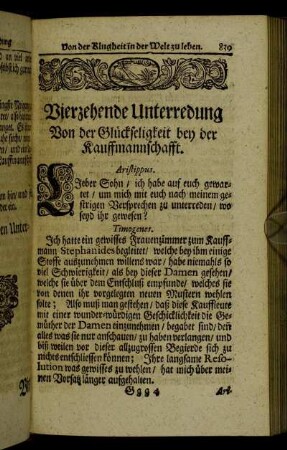 Von der Klugheit in der Welt zu leben. 839
Vierzehende Unterredung
Von der Glückseligkeit bey der
Kauffmannschafft.
Aristippus.
LIeber Sohn / ich habe auf euch gewar-
tet / um mich mit euch nach meinem ge-
strigen Versprechen zu unterreden / wo
seyd ihr gewesen?
Timogenes.
Ich hatte ein gewisses Frauenzimmer zum Kauff-
mann Stephanides begleitet / welche bey ihm einige
Stoffe auszunehmen willens war / habe niemahls so
viel Schwierigkeit / als bey dieser Damen gesehen /
welche sie über dem Entschluß empfunde / welches sie
von denen ihr vorgelegten neuen Mustern wehlen
solte; Also muß man gestehen / daß diese Kauffleute
mit einer wunder-würdigen Geschicklichkeit die Ge-
müther der Damen einzunehmen / begabet sind / denn
alles was sie nur anschauen / zu haben verlangen / und
biß weilen vor dieser allzugrossen Begierde sich zu
nichts entschliessen können; Ihre langsame Reso-
lution was gewisses zu wehlen / hat mich über mei-
nen Vorsatz länger aufgehalten.
Ggg 4 Ari-